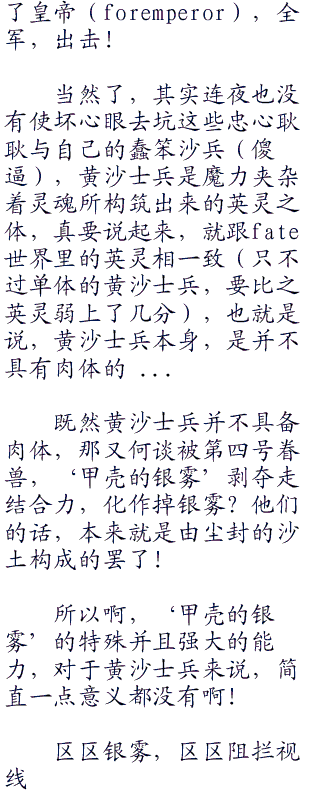 了皇帝（foremperor），全
军，出击！
当然了，其实连夜也没
有使坏心眼去坑这些忠心耿
耿与自己的蠢笨沙兵（傻
逼），黄沙士兵是魔力夹杂
着灵魂所构筑出来的英灵之
体，真要说起来，就跟fate
世界里的英灵相一致（只不
过单体的黄沙士兵，要比之
英灵弱上了几分），也就是
说，黄沙士兵本身，是并不
具有肉体的 ...
既然黄沙士兵并不具备
肉体，那又何谈被第四号眷
兽，‘甲壳的银雾’剥夺走
结合力，化作掉银雾？他们
的话，本来就是由尘封的沙
土构成的罢了！
所以啊，‘甲壳的银
雾’的特殊并且强大的能
力，对于黄沙士兵来说，简
直一点意义都没有啊！
区区银雾，区区阻拦视
线